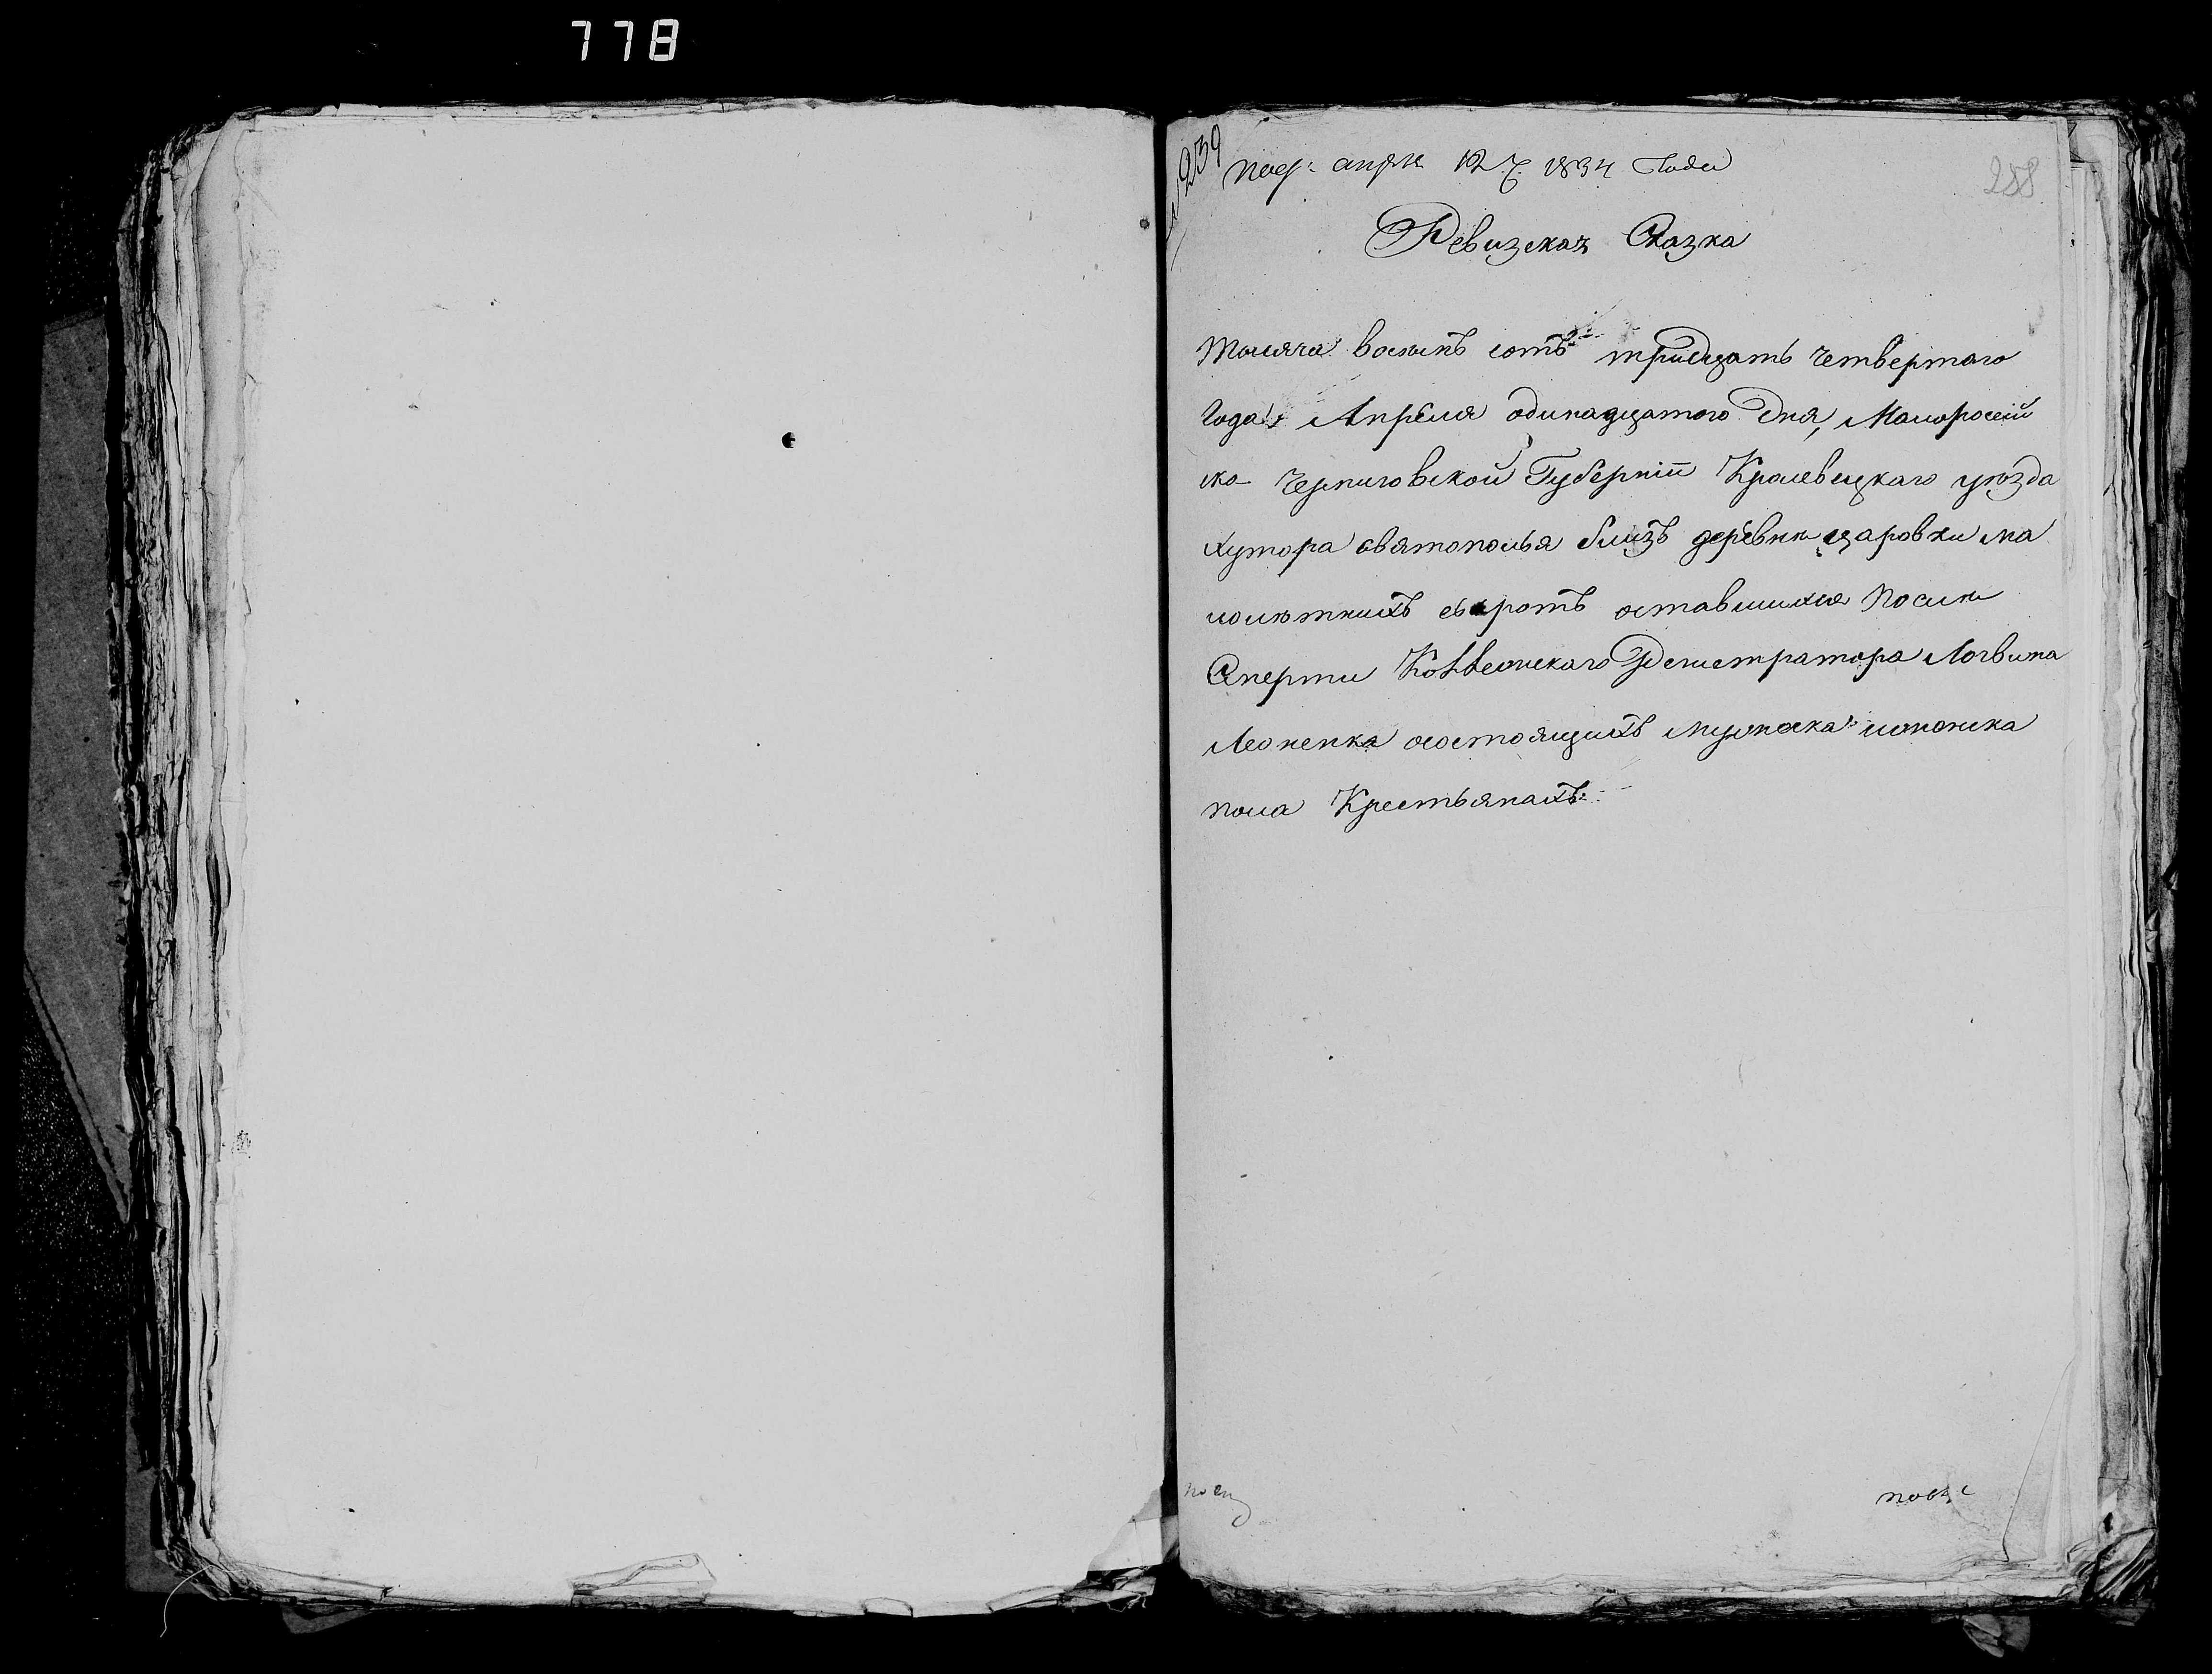 778
239
288
апрл 12 1834 Года
Ревизская Сказка
Тысяча восемь сотъ тридцать четвертаго
Года Апреля одинадцатого Дня, Малоросей
ско Черниговской Губерніи Кролевецкаго уѣзда
хутора святополья близъ деревни царовки ма
лолѣтнихъ сыротъ оставшихся посли
Смерти Коллежскаго Регистратора Логвина
Леоненка состоящихъ мужеска и женска
пола Крестьянахъ